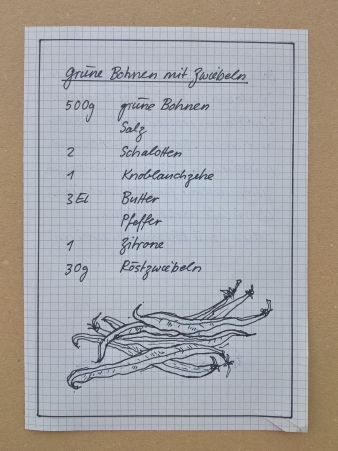 grüne Bohnen mit Zwiebeln
500g grüne Bohnen
Salz
2 Schalotten
1 Knoblauchzehe
3 El Butter
Pfeffer
1 Zitrone
30g Röstzwiebeln